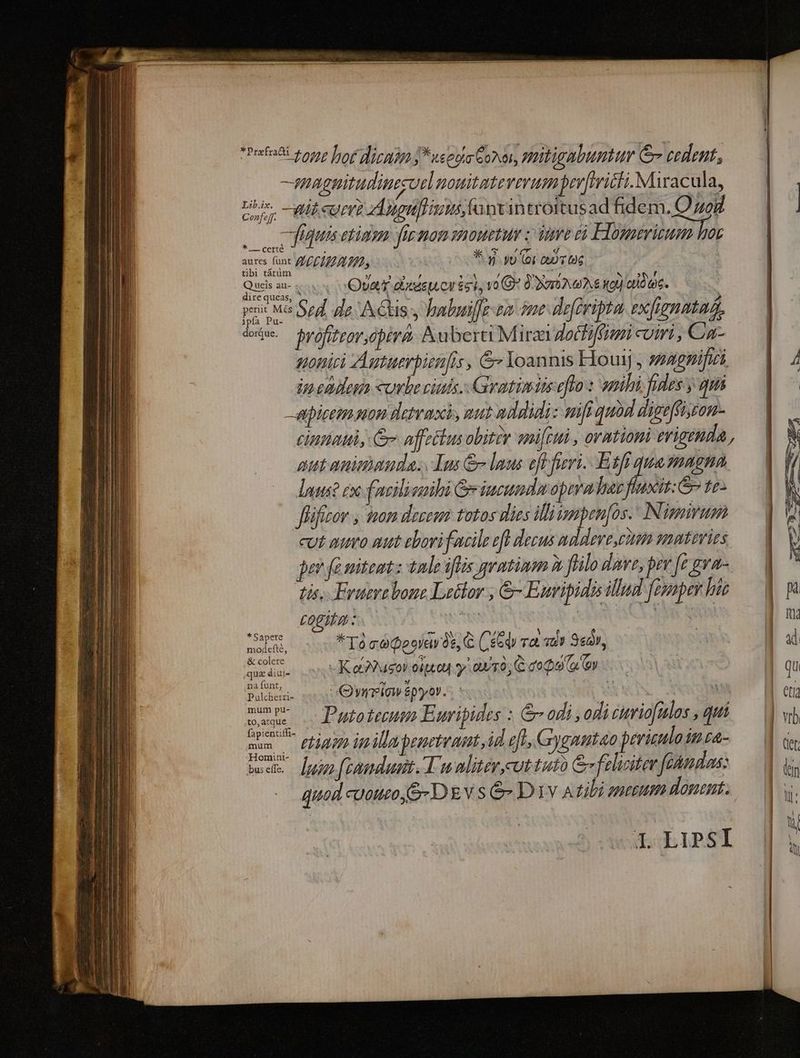 tone hoc dicam, *κεράσβολοι, mitigabuntur & cedent,
magnitudine, vel nouitate rerum perstricti. Miracula,
ait verè Augustinus, sunt introitus ad fidem. Quod
si quis etiam sic non mouetur: iure ei Homericum hoc
accinam, * ἦ νύ τοι αὕτως
Οὔατ' ἀκουέμεν ἐστὶ, νόος δ' ἀπόλωλε καὶ αἰδώς.
Sed de Actis, habuisse ea me descripta exsignataq,
profiteor, operâ Auberti Miræi doctissimi viri, Ca-
nonici Antuerpiensis, & Ioannis Houij, magnifici
in eadem vrbe ciuis. Gratia iis esto: mihi fides, qui
apicem non detraxi, aut addidi: nisi quòd digessi, con-
cinnaui, & affectus obiter miscui, orationi erigenda,
aut animanda. Ius & laus est fieri. Etsi qua magna
laus? ex facili mihi & iucunda opera hæc fluxit: & te-
stificor, non decem totos dies illi impensos. Nimirum
vt auro aut ebori facile est decus addere, cùm materies
per se nitent: tale istis gratiam à stilo dare, per se gra-
tis. Fruere bone Lector, & Euripidis illud semper hic
cogita:
*Τὸ σωφρονεῖν δὲ, & σέβειν τὰ τῶν θεῶν,
Κάλλιστον οἶμαι γ' αὐτὸ, & σοφώτατον
Θνητοῖσιν ἔργον.
Puto tecum Euripides: & odi, odi curiosulos, qui
etiam in illa penetrant, id est, Gygantao periculo in ca-
lum scandunt. Tu aliter, vt tuto & feliciter scandas:
quod voueo, & DEVS & DIVA tibi mecum donent.
I. LIPSI
*Præfracti
Lib. ix.
Confess.
*— certè
aures sunt
tibi tátùm
Queis au-
dire queas,
periit Mēs
ipsa Pu-
dorque.
*Sapere
modestè,
& colere
quæ diui-
na sunt,
Pulcherri-
mum pu-
to, atque
sapientissi-
mum
Homini-
bus esse.